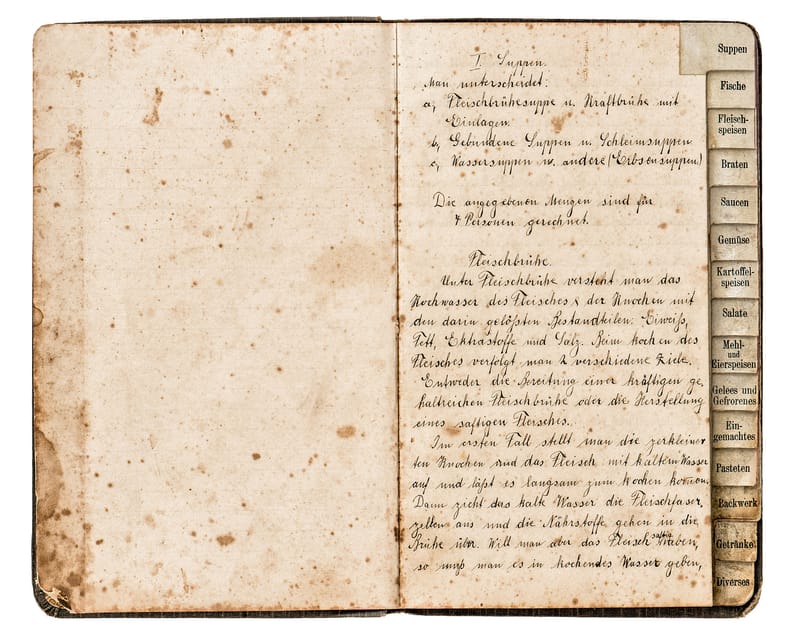 I. Suppen.
Man unterscheidet:
a, Fleischbrühesuppe u. Kraftbrühe mit
Einlagen.
b, Gebundene Suppen u. Schleimsuppen
c, Wassersuppen u. andere (Erbsensuppen)
Die angegebenen Mengen sind für
4 Personen gerechnet.
Fleischbrühe.
Unter Fleischbrühe versteht man das
Kochwasser des Fleisches & der Knochen mit
den darin gelößten Bestandteilen: Eiweiß,
Fett, Extrastoffe und Salz. Beim kochen des
Fleisches verfolgt man 2 verschiedene Ziele.
Entweder die Bereitung einer kräftigen ge,
haltreichen Fleischbrühe oder die Herstellung
eines saftigen Fleisches.
Im ersten Fall stellt man die zerkleiner
ten Knochen und das Fleisch mit kaltem Wasser
auf und läßt es langsam zum Kochen kommen.
Dann zieht das kalte Wasser die Fleischfaser,
zellen aus und die Nährstoffe gehen in die
Brühe über. Will man aber das Fleisch saftig haben,
so muß man es in kochendes Wasser geben,
Suppen
Fische
Fleisch-
speisen
Braten
Saucen
Gemüse
Kartoffel-
speisen
Salate
Mehl-
und
Eierspeisen
Gelees und
Gefrorenes
Ein-
gemachtes
Pasteten
Backwerk
Getränke
Diverses